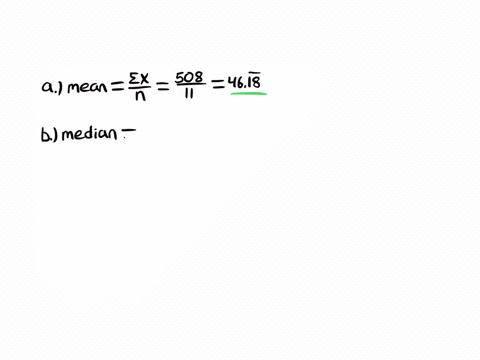 a.) mean = Σx/n = 508/11 = 46.1̅8̅
b.) median =